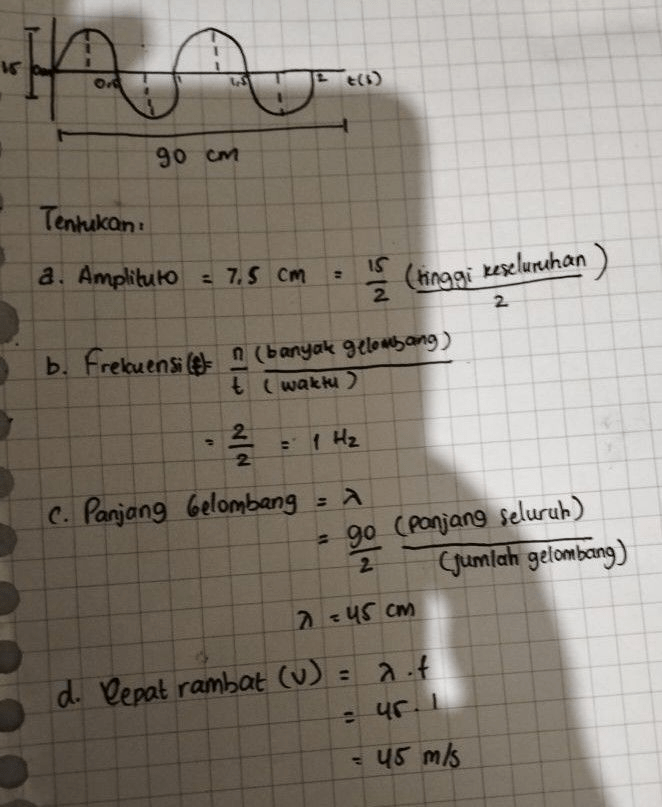 15
0,5
1
1,5
2
t(s)
90 cm
Tentukan:
a. Amplituro = 7,5 cm = 15/2 (tinggi keseluruhan)/2
b. Frekuensi (f) = n/t (banyak gelombang)/(waktu)
= 2/2 = 1 Hz
c. Panjang Gelombang = λ
= 90/2 (panjang seluruh)/(jumlah gelombang)
λ = 45 cm
d. Cepat rambat (v) = λ . f
= 45 . 1
= 45 m/s